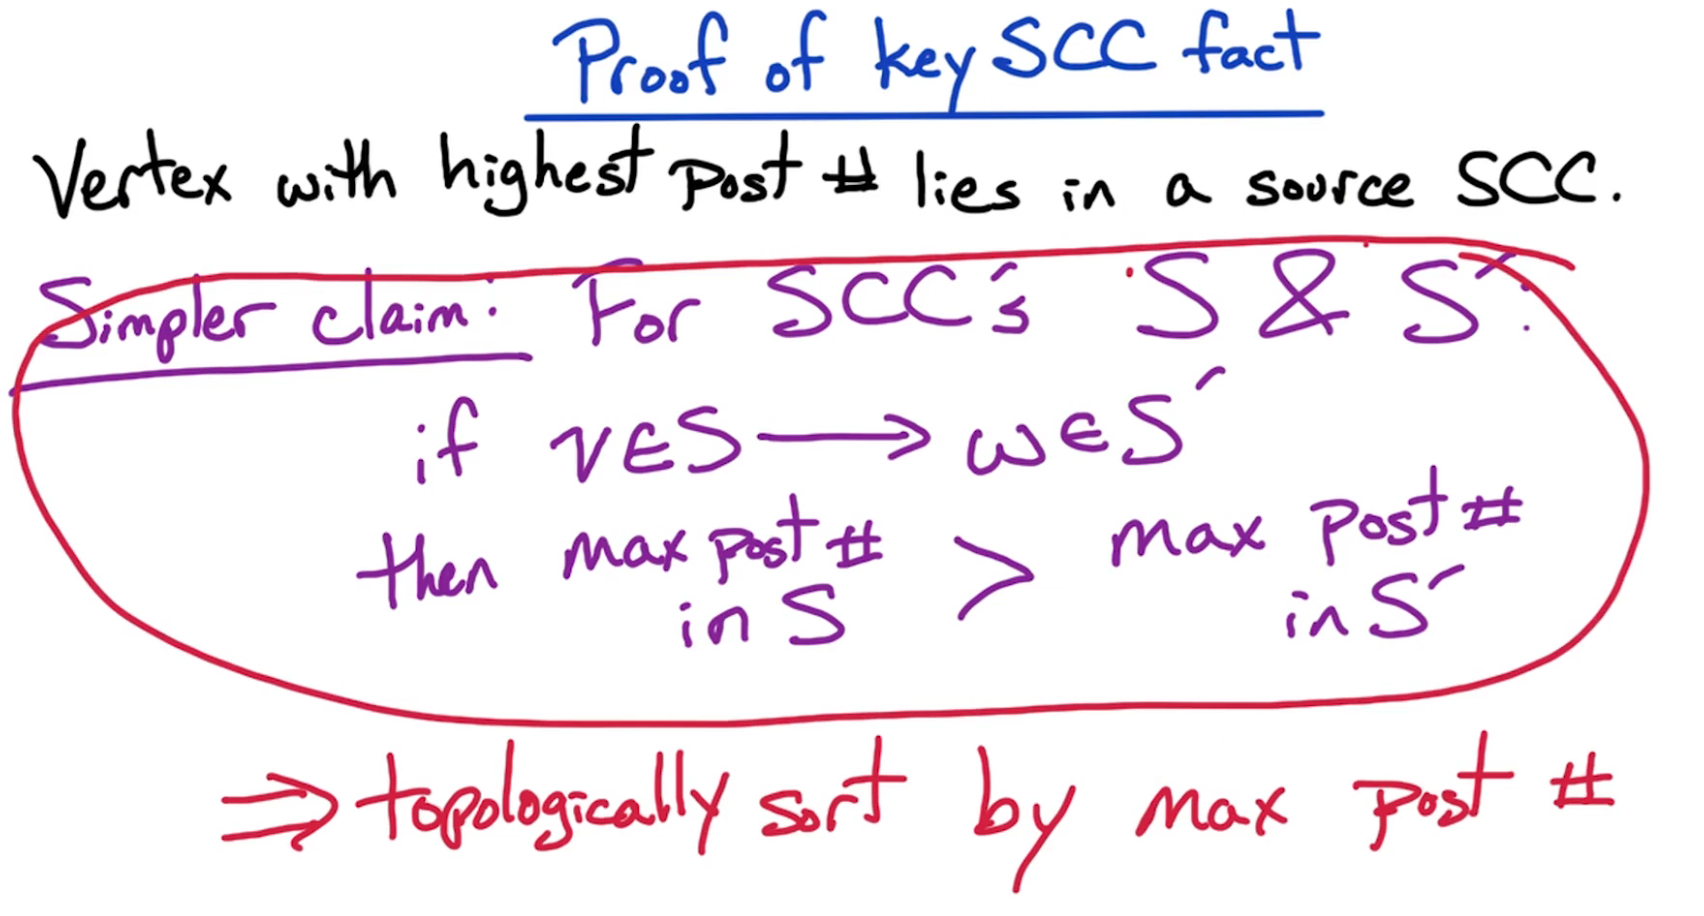 Proof of key SCC fact
Vertex with highest post # lies in a source SCC.
Simpler claim: For SCC's S & S':
if v∈S → w∈S'
then max post # in S > max post # in S'
⇒ topologically sort by max post #